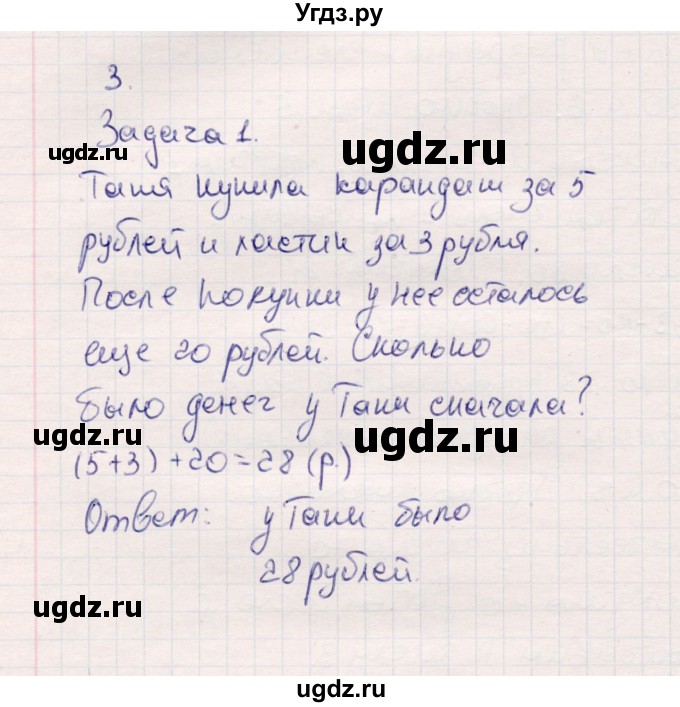 Угдз.ру
3.
Задача 1.
ugdz.ru
ugdz.ru
Таня купила карандаш за 5
рублей и ластик за 3 рубля.
После покупки у нее осталось
еще 20 рублей. Сколько
было денег у Тани сначала?
ugdz.ru
ugdz.ru
(5+3)+20=28 (р.)
Ответ: у Тани было
28 рублей.
ugdz.ru
ugdz.ru